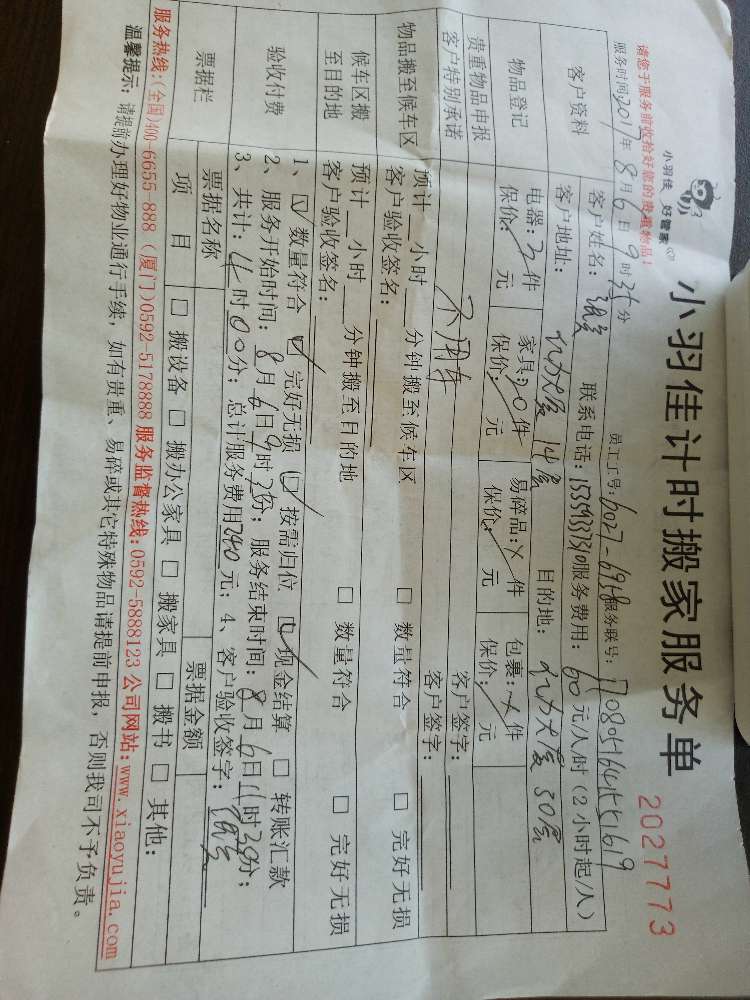 小羽佳 好管家
小羽佳计时搬家服务单
2027773
请您于服务前收拾好您的贵重物品！
服务时间:2017年8月6日9时35分 员工工号: 6027-6958 服务联号:
客户资料 客户姓名: 联系电话: 服务费用: 60元/人/时(2小时起/人)
客户地址: 亿力大厦14层 目的地: 亿力大厦30层
物品登记 电器: 件 家具: 件 易碎品: 件 包裹: 件
保价: 元 保价: 元 保价: 元 保价: 元
贵重物品申报 客户签字:
客户特别承诺 不用车 客户签字:
物品搬至候车区 预计__小时__分钟搬至候车区 □ 数量符合 □ 完好无损
客户验收签名:
候车区搬至目的地 预计__小时__分钟搬至目的地 □ 数量符合 □ 完好无损
客户验收签名:
验收付费 1、☑ 数量符合 ☑ 完好无损 ☑ 按需归位 ☑ 现金结算 □ 转账汇款
2、服务开始时间: 8月6日9时 分; 服务结束时间: 8月6日 时30分;
3、共计: 4时00分; 总计服务费用 元; 4、客户验收签字:
票据栏 票据名称 票据金额
项 目 □ 搬设备 □ 搬办公家具 □ 搬家具 □ 搬书 □ 其他:
服务热线:(全国)400-6655-888 (厦门)0592-5178888 服务监督热线:0592-5888123 公司网站:www.xiaoyujia.com
温馨提示: 请提前办理好物业通行手续，如有贵重、易碎或其它特殊物品请提前申报，否则我司不予负责。